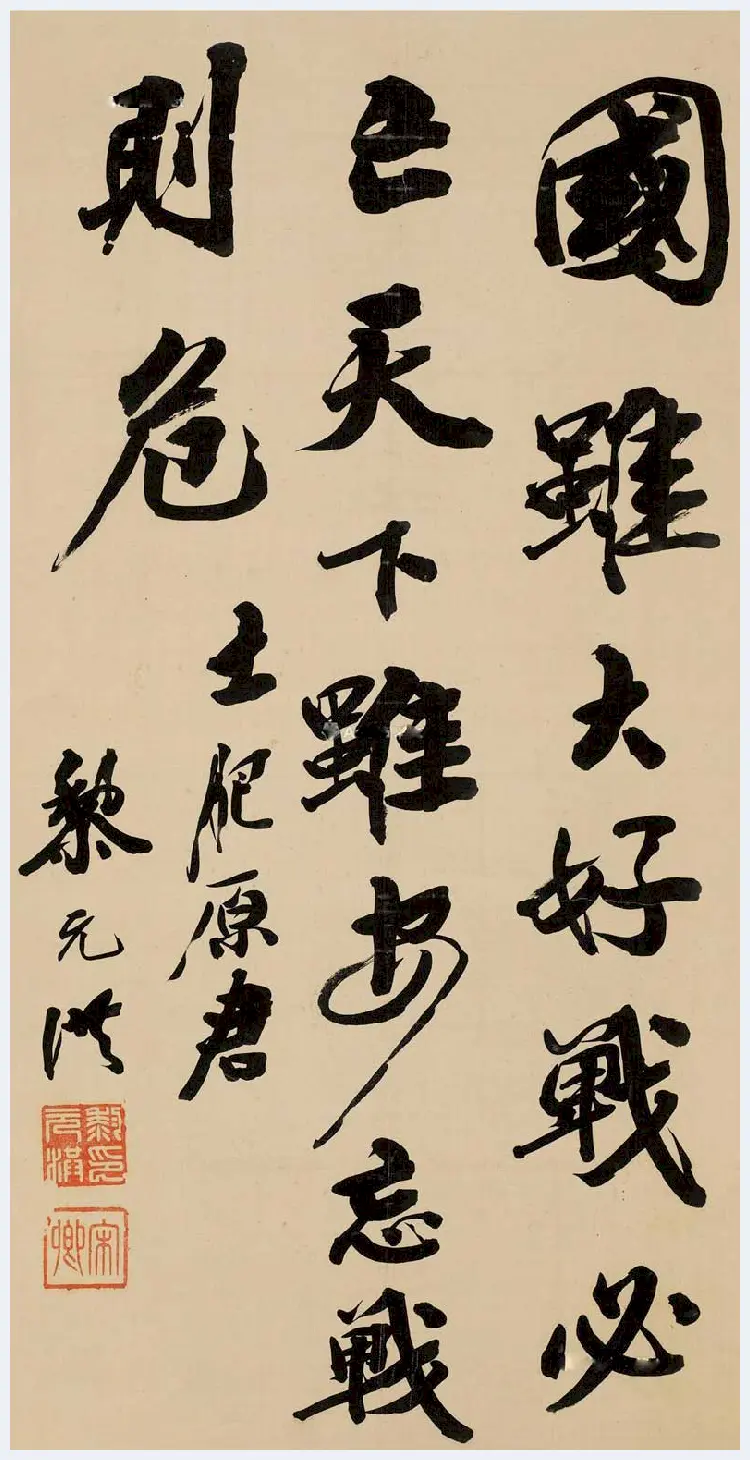 國雖大好戰必
亡天下雖安忘戰
則危
土肥原君
黎元洪
黎印元洪
宋卿